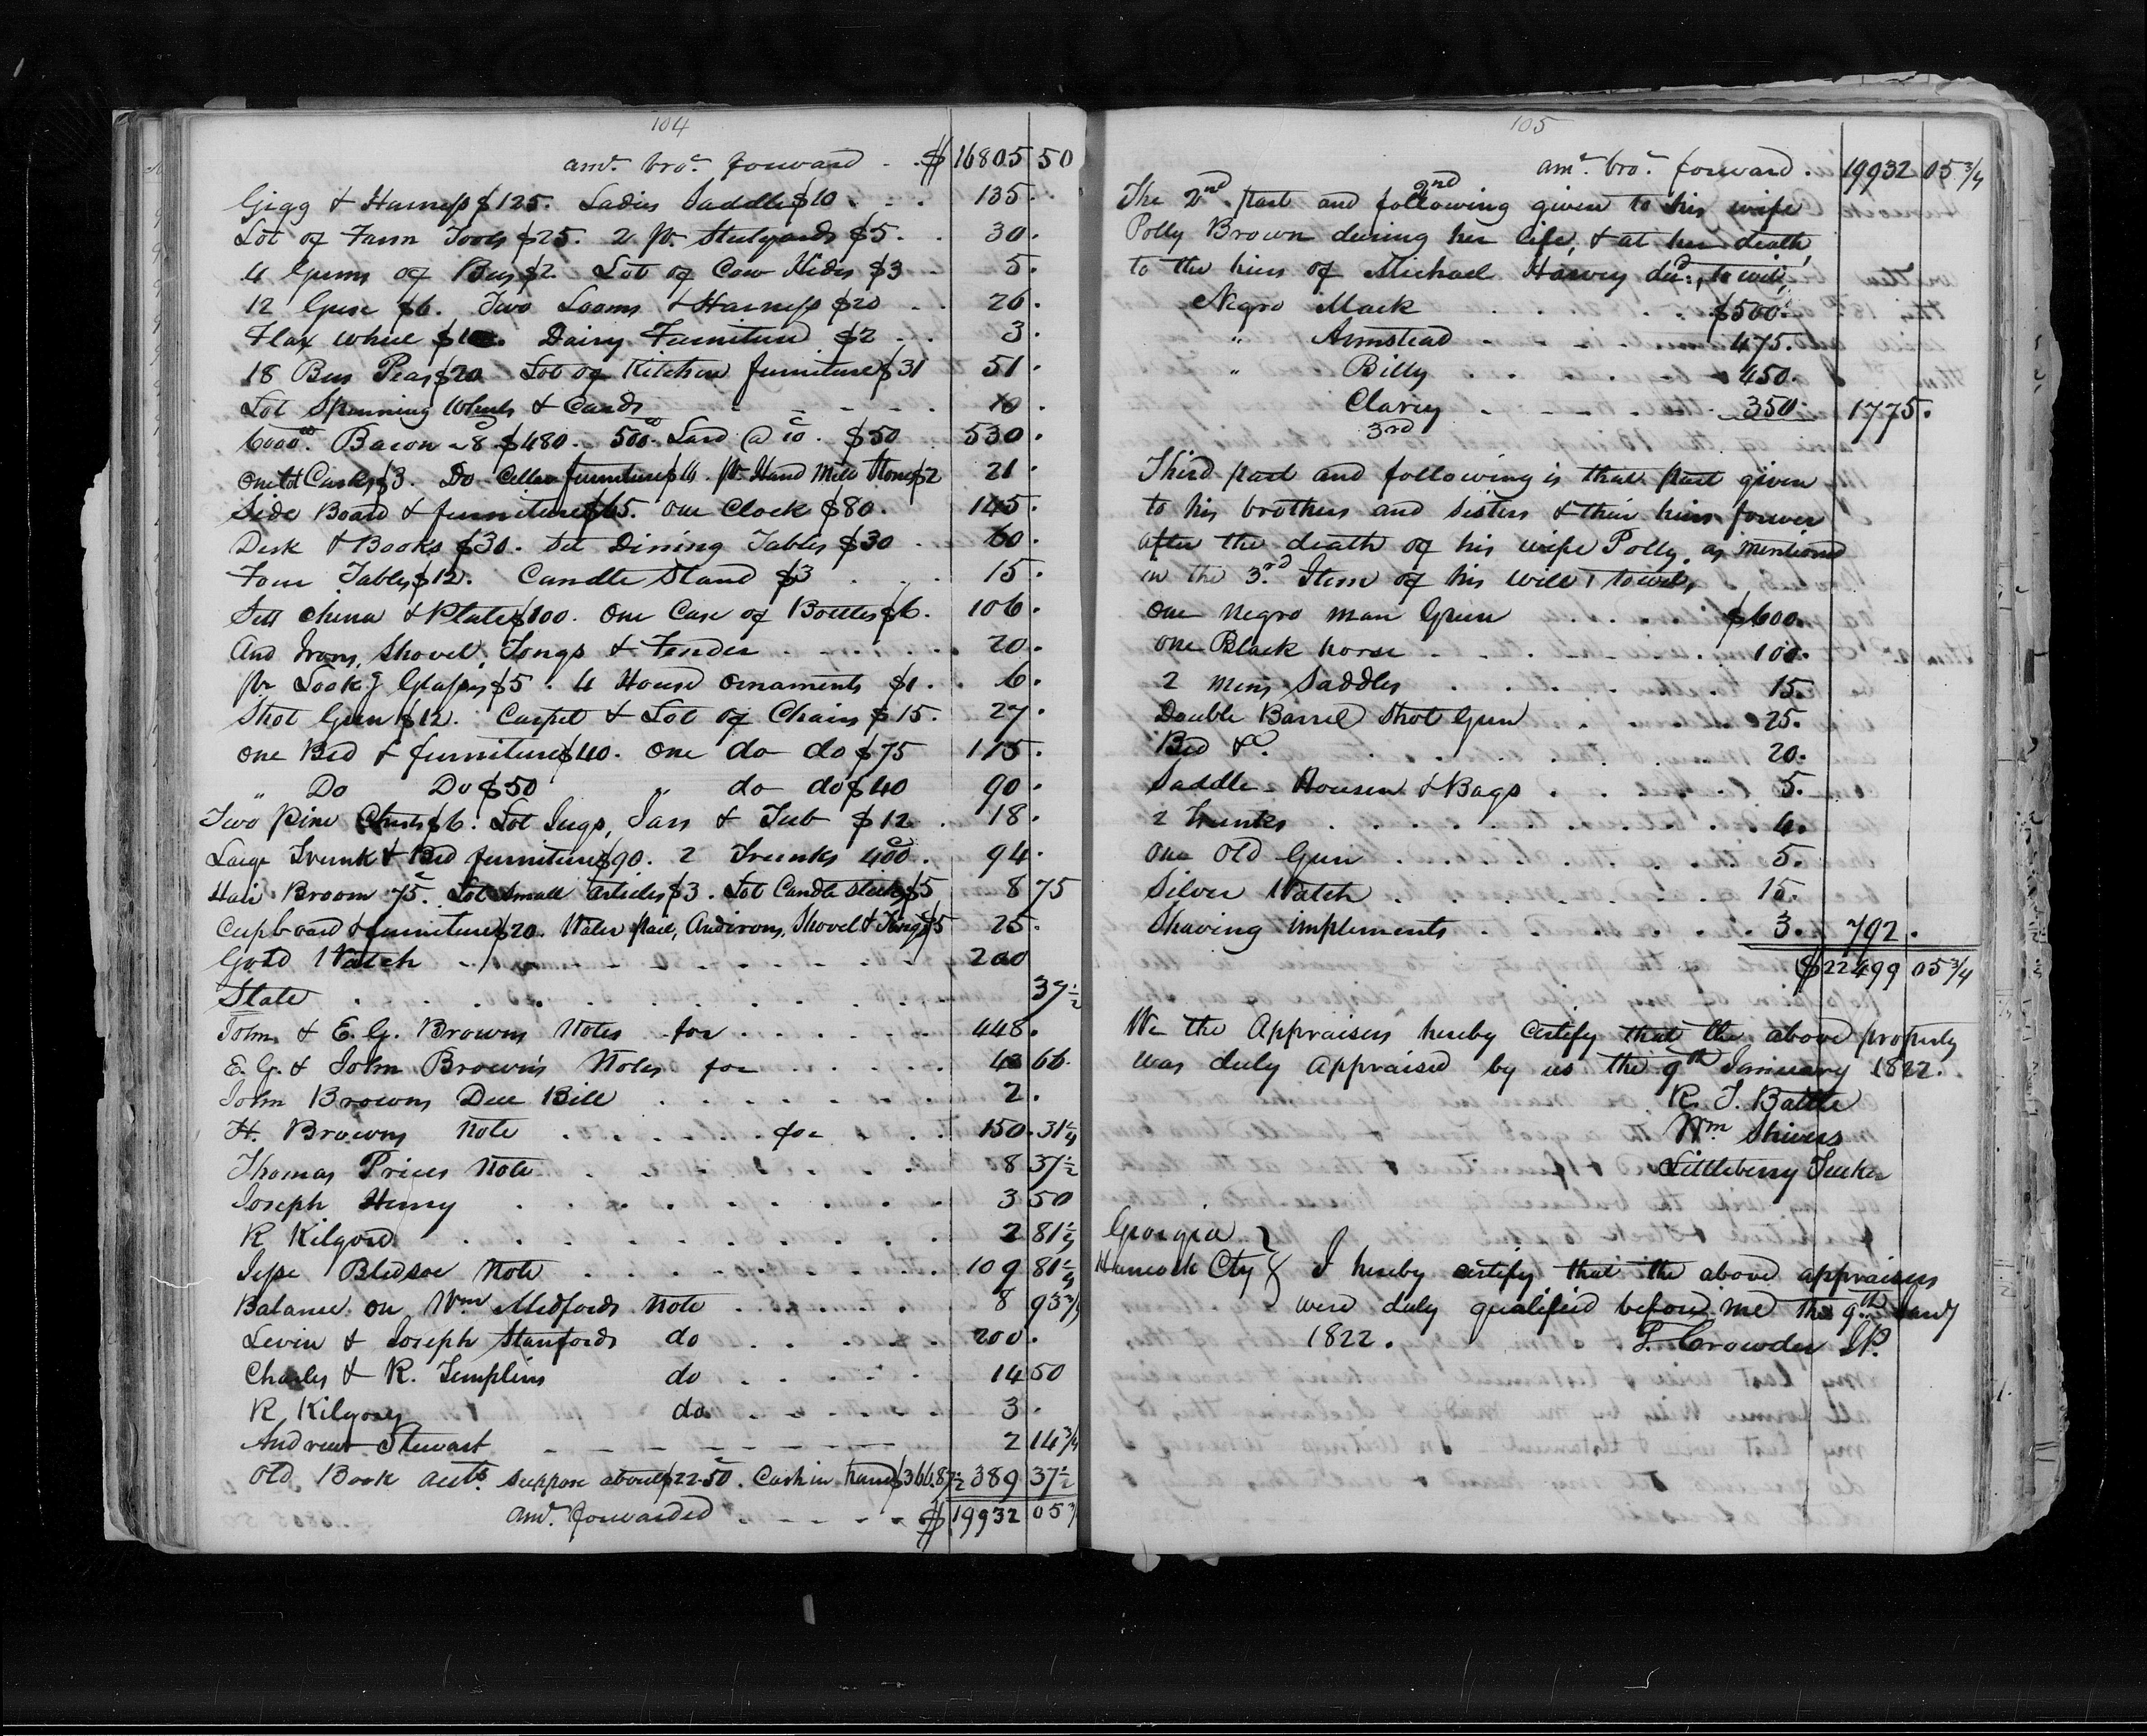 104
amt. bro. forward . . $ 16805 50
Gigg & Harness $125. Ladies Saddle $10 . . . 135.
Lot of Farm Tools $25. 2 pr. Steelyards $5 . . 30.
4 Gums of Bees $2. Lot of Cow Hides $3 5.
12 Geese $6. Two Looms & Harness $20 . . 26.
Flax Wheel $1. Dairy Furniture $2 . . 3.
18 Bus Peas $20 Lot of Kitchen furniture $31 51.
Lot Spinning Wheels & Cards - - - - . 10.
6000 Bacon 8c $480. 500 Lard @ 10c. $50 530.
One lot Casks $3. Do Cellar furniture $14. pr. Hand Mill Stones $2 21.
Side Board & furniture $65. one Clock $80. 145.
Desk & Books $30. Set Dining Tables $30 . . 60.
Four Tables $12. Candle Stand $3 . . . 15.
Sett china & Plate $100. One Case of Bottles $6. 106.
And Irons, Shovel, Tongs & Fender . . . . . 20.
pr Lookg Glasses $5. 4 House ornaments $1. . 6.
Shot Gun $12. Carpet & Lot of Chairs $15. 27.
One Bed & furniture $40. One do do $75 115.
" Do Do $50 " do do $40 90.
Two Pine Chests $6. Lot Jugs, Jars & Tub $12 . 18.
Large Trunk & Bed furniture $90. 2 Trunks 400. 94.
Hair Broom 75c. Lot Small Articles $3. Lot Candle sticks $5 8 75
Cupboard & furniture $20. Water pail, Andirons, Shovel & Tongs $5 25.
Gold Watch - - - - - - - 200
Slate . . . . . . . . . 37½
John & E. G. Browns Notes for . . . . . 448.
E. G. & John Brown's Notes for . . . . . 43 66.
John Browns Due Bill . . . . . . 2.
H. Browns Note . . . . . for . . . 150.31¼
Thomas Prices Note . . . . . . . 8 37½
Joseph Henry . . . . . . . . 3 50
R Kilgore . . . . . . . . 2 81¼
Jesse Bledsoe Note . . . . . . . 109 81¼
Balance on Wm Medfords Note . . . . . 8 93¾
Levin & Joseph Stanfords do . . . . . 200.
Charles & R. Templins do . . . . . 14 50
R Kilgore do . . . . . 3.
Andrew Stewart - - - - - - - - 2 14¾
Old Book accts. suppose about $22.50. Cash in hand $366.87½ 389 37½
amt. forwarded . - - - . $ 19932 05¾
105
amt. bro. forward . 19932 05¾
2nd
The 2nd. part and following given to his wife
Polly Brown during her life, & at her death,
to the heirs of Michael Harvey decd., to wit,
Negro Mack . . . . . . $500.
" Armstead . . . . . . 475.
" Billy . . . . . . 450.
Clarey . - - - . . 350. 1775.
3rd
Third part and following is that part given
to his brothers and sisters & their heirs forever
after the death of his wife Polly, as mentioned
in the 3rd. Item of his will, towit,
One negro man Green $600.
One Black horse . - . . . . . 100.
2 mens Saddles . . . . . . 15.
Double Barrel Shot Gun . . . 25.
Bed &c. . . . . . . . 20.
Saddle Housen & Bags . . . . . 5.
2 Trunks . . . . . . . . . . 4.
One Old Gun . . . . . . . . 5.
Silver Watch . . . . . . . 15.
Shaving implements . . . . . . . 3. 792.
$ 22499 05¾
We the Appraisers hereby certify that the above property
was duly appraised by us the 9th January 1822.
R. T. Battle
Wm Shivers
Littleberry Tucker
Georgia }
Hancock Cty } I hereby certify that the above appraisers
were duly qualified before me the 9th Jany
1822. T. Crowder JP.